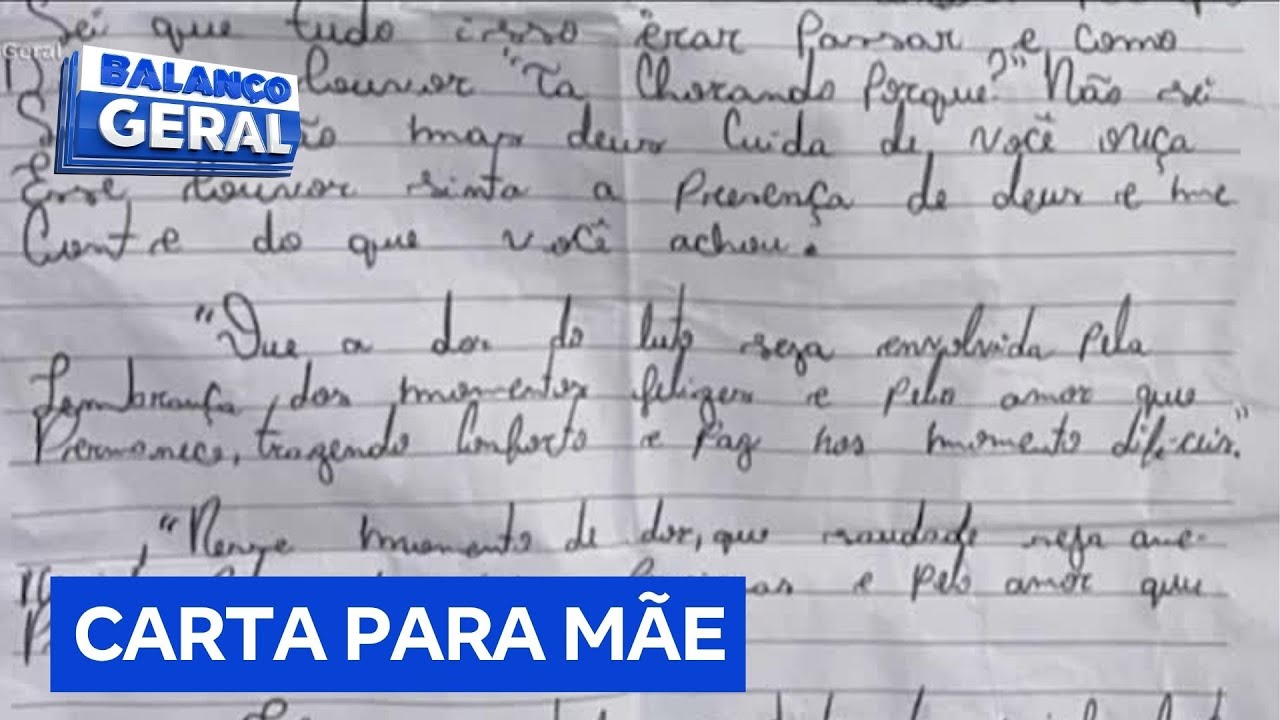 Sei que tudo isso irar Passar e como
Geral
BALANÇO
GERAL
louvor "Ta Chorando Porque?" Não sei
mas deus Cuida de você ouça
Esse louvor sinta a Presença de deus e me
Conte do que você achou.
"Que a dor do luto seja envolvida pela
Lembrança dos momentos felizes e pelo amor que
Permanece, trazendo Conforto e Paz nos momento difíceis."
"Nesse momento de dor, que saudade seja ame-
e pelo amor que
CARTA PARA MÃE